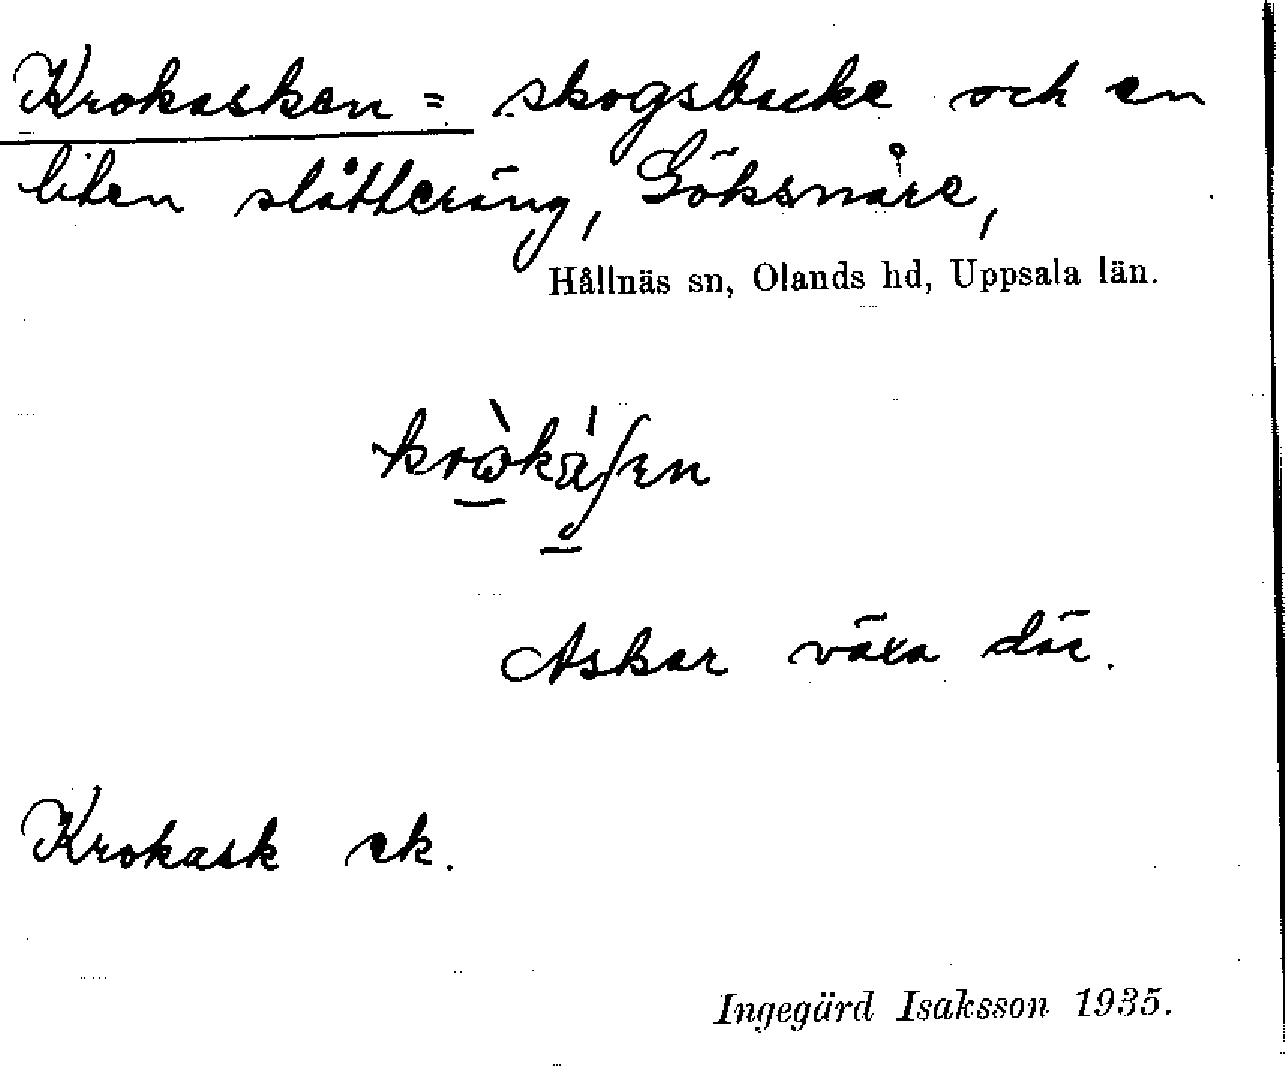 Krokasken = skogsbacke och en
liten slåtteräng, Göksnåre,
Hållnäs sn, Olands hd, Uppsala län.
Askar växa där.
Krokask ek.
Ingegärd Isaksson 1935.